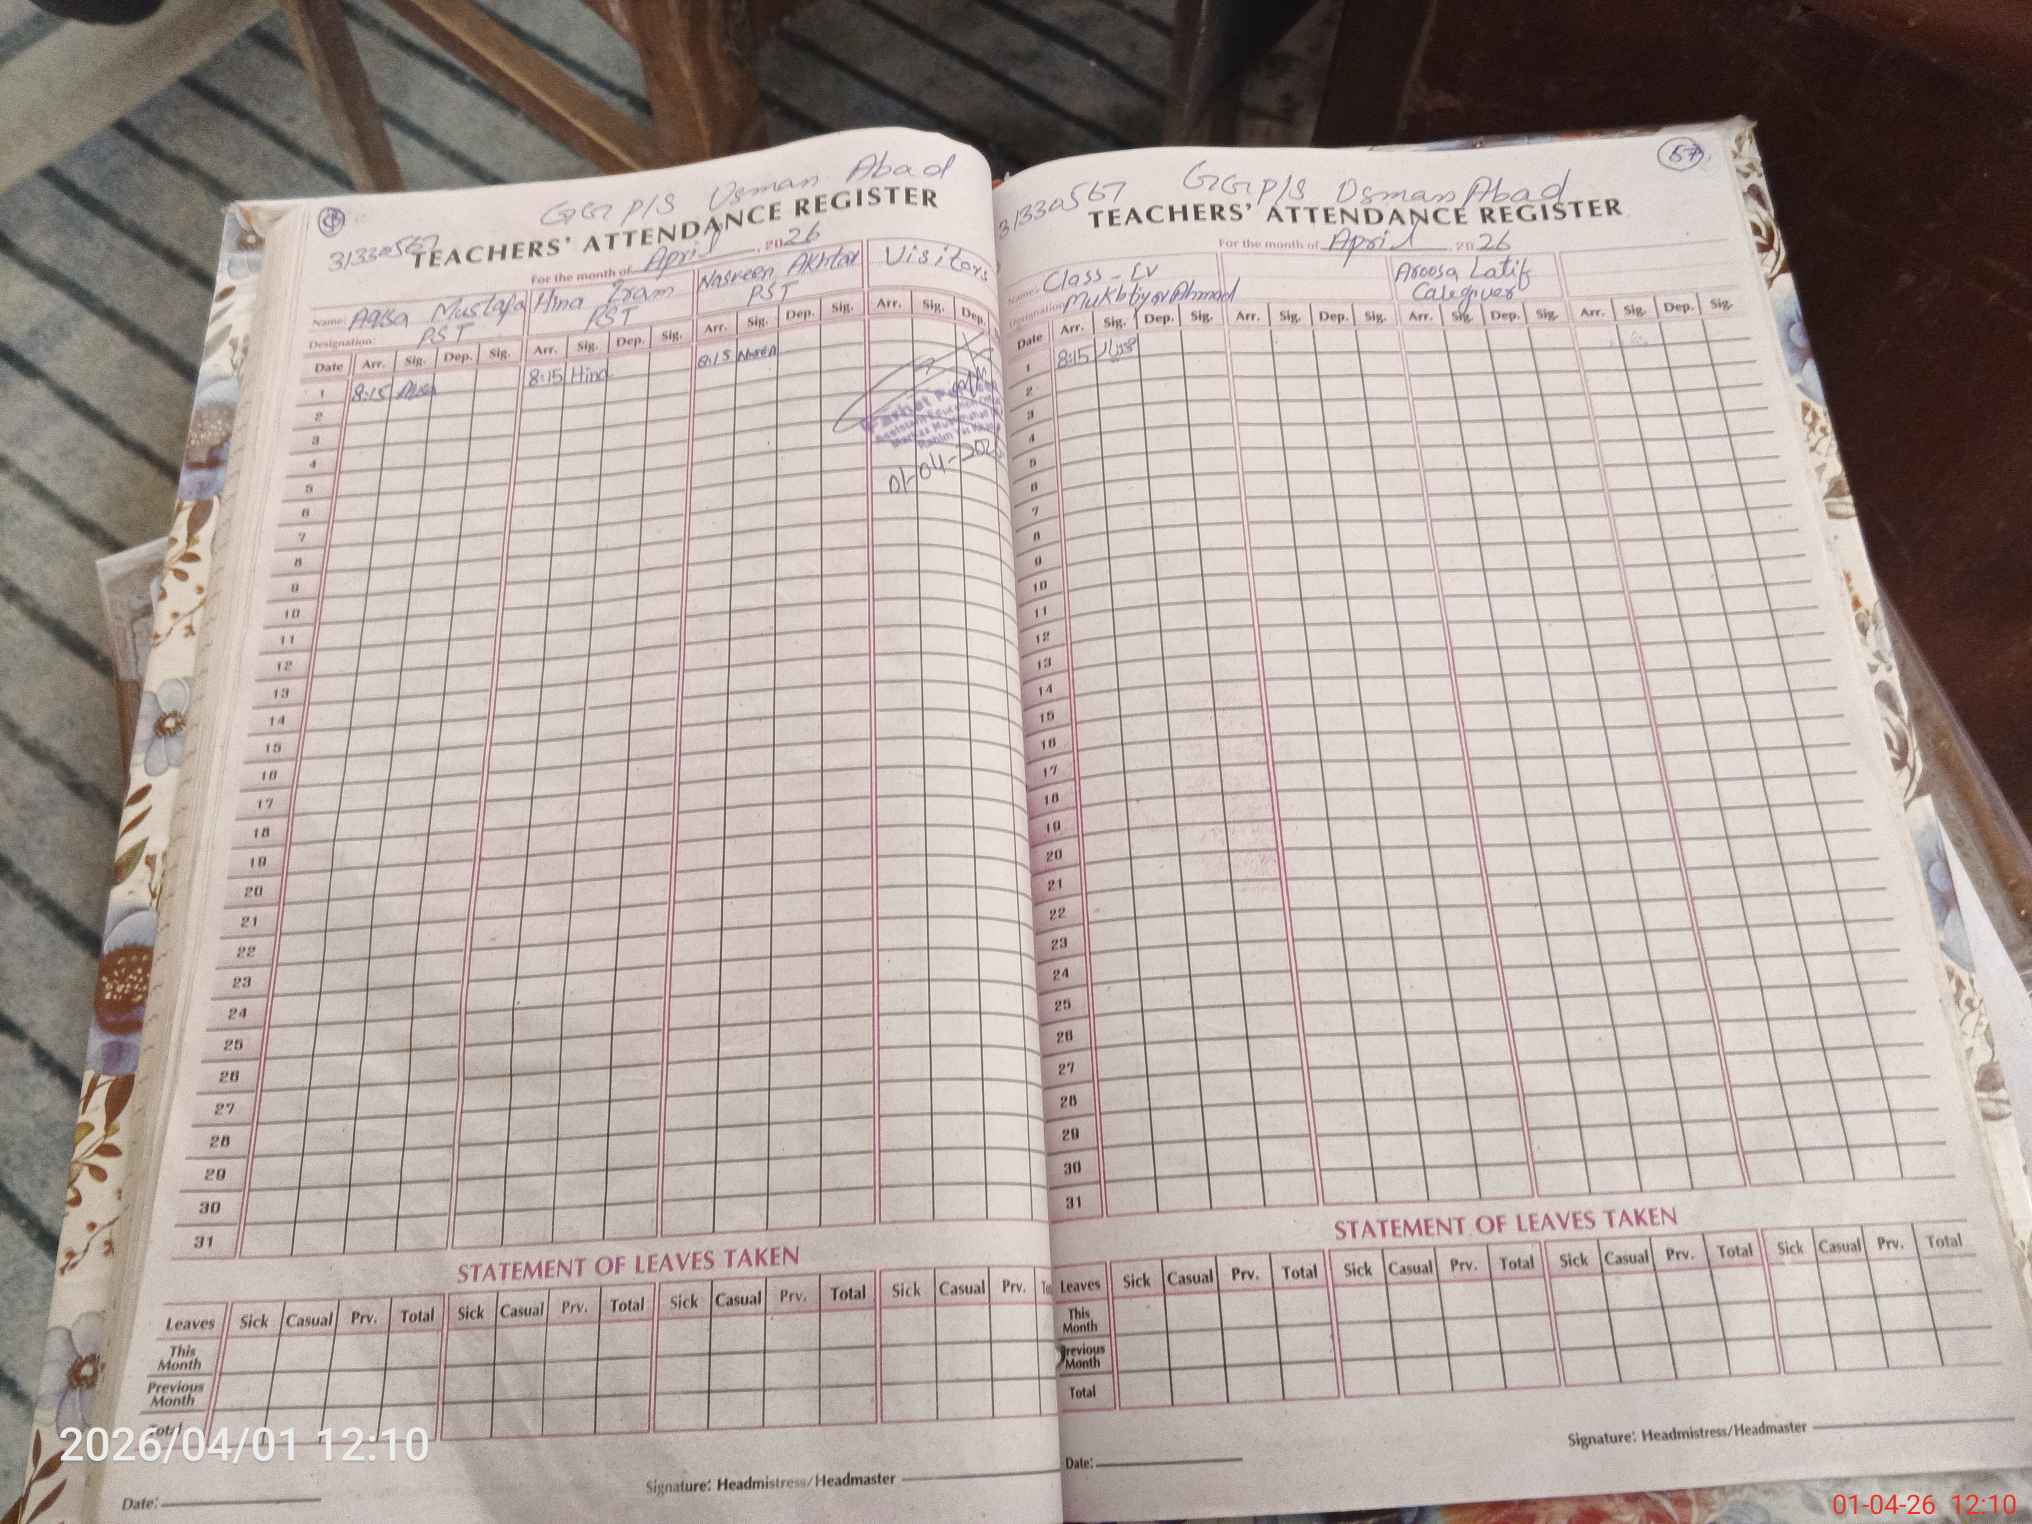 GGPS Usman Abad
31330567
TEACHERS' ATTENDANCE REGISTER
For the month of April, 2026
Name: Aqsa Mustafa Hina Iram Nasreen Akhtar Visitors
Designation: PST PST PST
Date Arr. Sig. Dep. Sig. Arr. Sig. Dep. Sig. Arr. Sig. Dep. Sig. Arr. Sig. Dep.
1 8:15 8:15 Hina 8:15
2
3
4
01-04-202
5
6
7
8
9
10
11
12
13
14
15
16
17
18
19
20
21
22
23
24
25
26
27
28
29
30
31
STATEMENT OF LEAVES TAKEN
Leaves Sick Casual Prv. Total Sick Casual Prv. Total Sick Casual Prv. Total Sick Casual Prv.
This Month
Previous Month
Total
Date:
Signature: Headmistress/Headmaster
57
31330567 GGPS Usman Abad
TEACHERS' ATTENDANCE REGISTER
For the month of April, 2026
Name: Class-IV Aroosa Latif
Designation: Mukhtiyar Ahmad Caregiver
Date Arr. Sig. Dep. Sig. Arr. Sig. Dep. Sig. Arr. Sig. Dep. Sig. Arr. Sig. Dep. Sig.
1 8:15
2
3
4
5
6
7
8
9
10
11
12
13
14
15
16
17
18
19
20
21
22
23
24
25
26
27
28
29
30
31
STATEMENT OF LEAVES TAKEN
Leaves Sick Casual Prv. Total Sick Casual Prv. Total Sick Casual Prv. Total Sick Casual Prv. Total
This Month
Previous Month
Total
Signature: Headmistress/Headmaster
Date:
2026/04/01 12:10
01-04-26 12:10